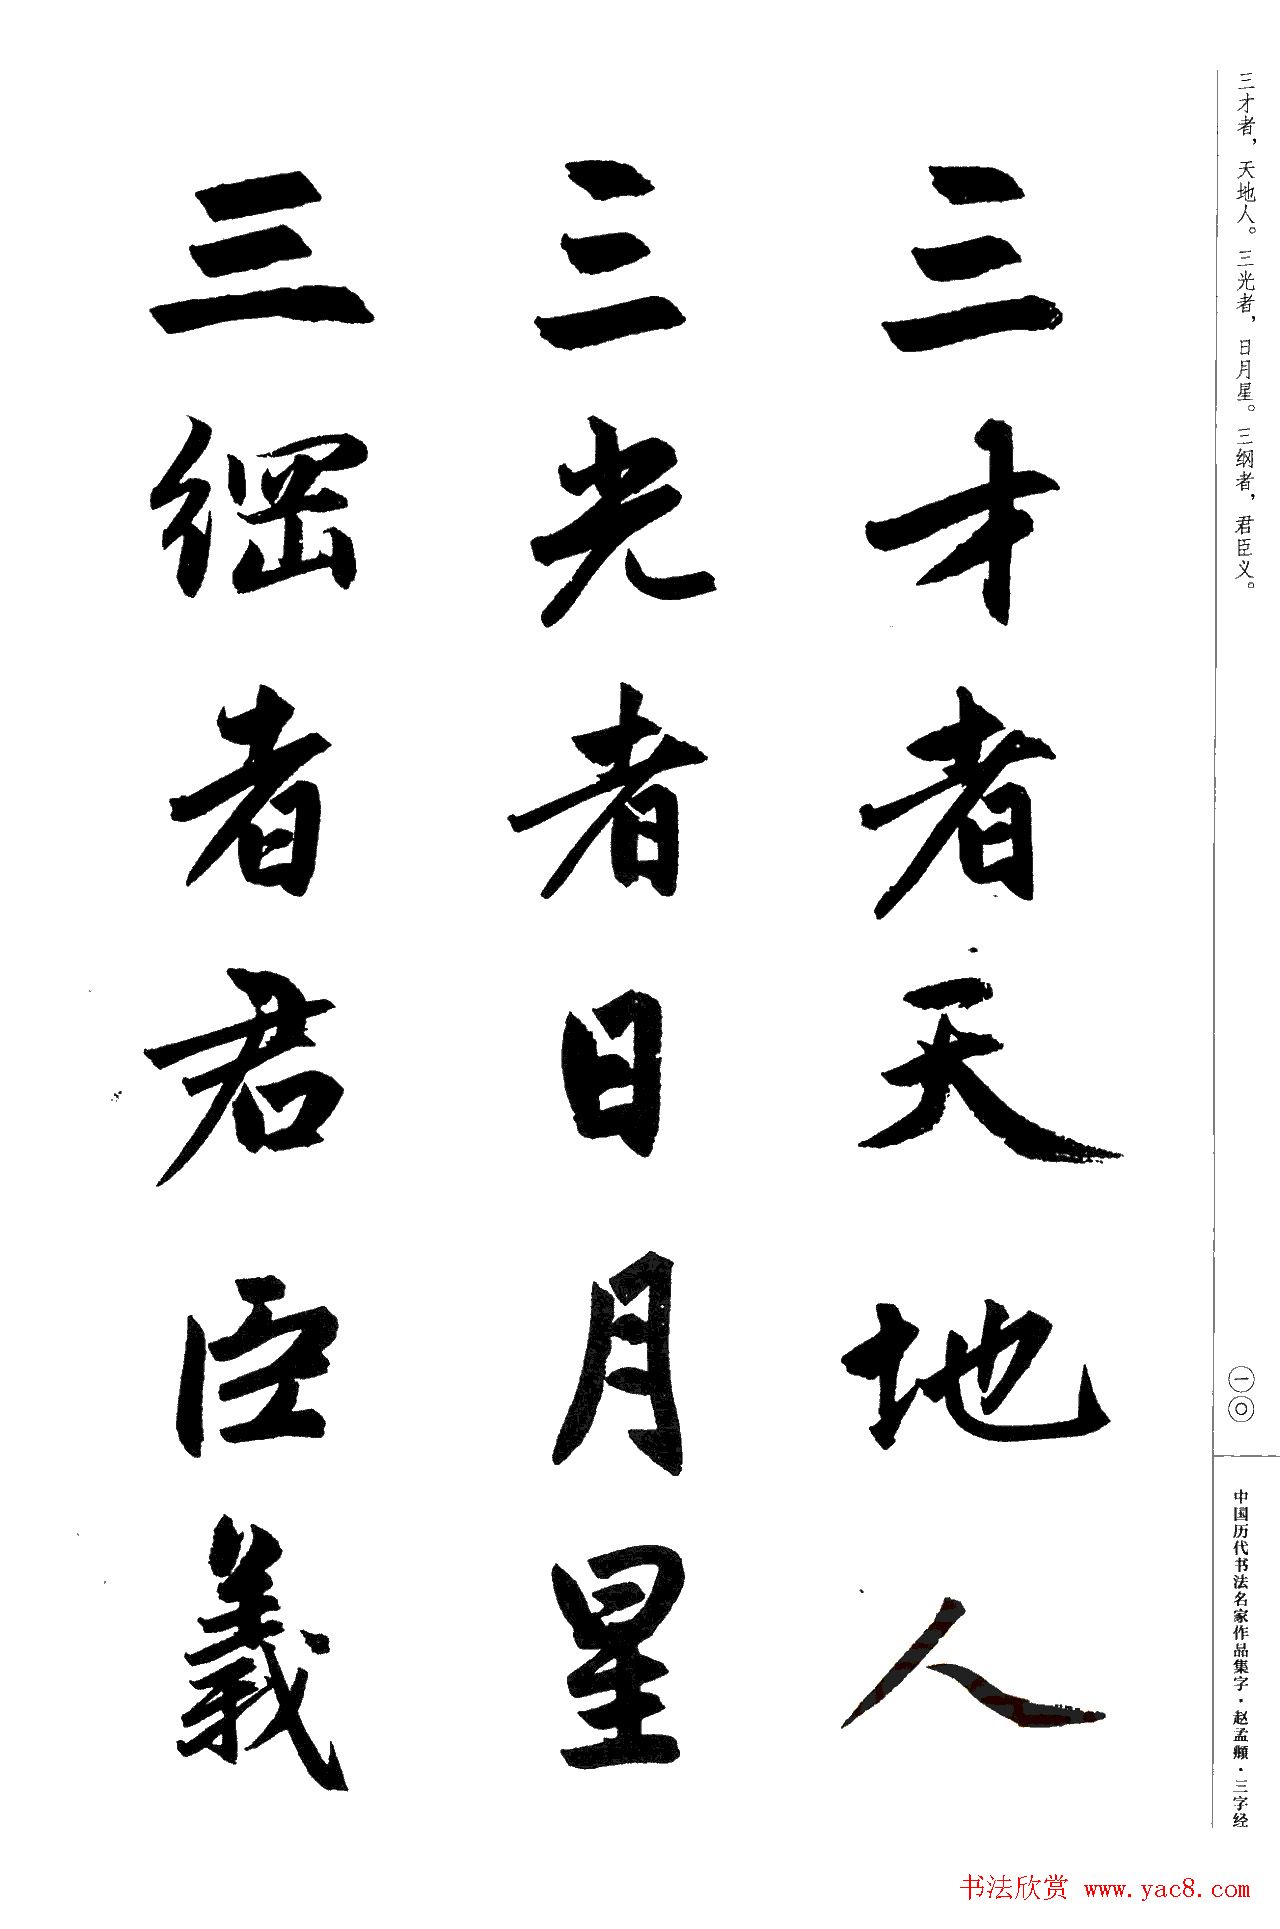 三才者天地人
三光者日月星
三綱者君臣義
三才者，天地人。三光者，日月星。三纲者，君臣义。
一〇
中国历代书法名家作品集字·赵孟頫·三字经
书法欣赏 www.yac8.com